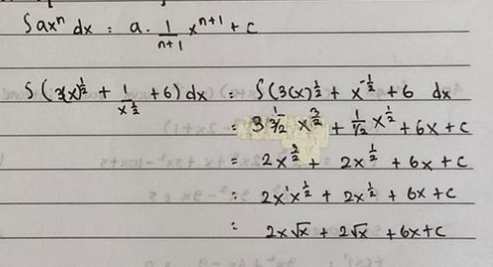 ∫ axⁿ dx = a. 1/(n+1) x^(n+1) + c
∫ (3(x)^(1/2) + 1/x^(1/2) + 6) dx = ∫ (3(x)^(1/2) + x^(-1/2) + 6 dx
= 3 1/(3/2) x^(3/2) + 1/(1/2) x^(1/2) + 6x + c
= 2x^(3/2) + 2x^(1/2) + 6x + c
= 2x¹x^(1/2) + 2x^(1/2) + 6x + c
= 2x√x + 2√x + 6x + c